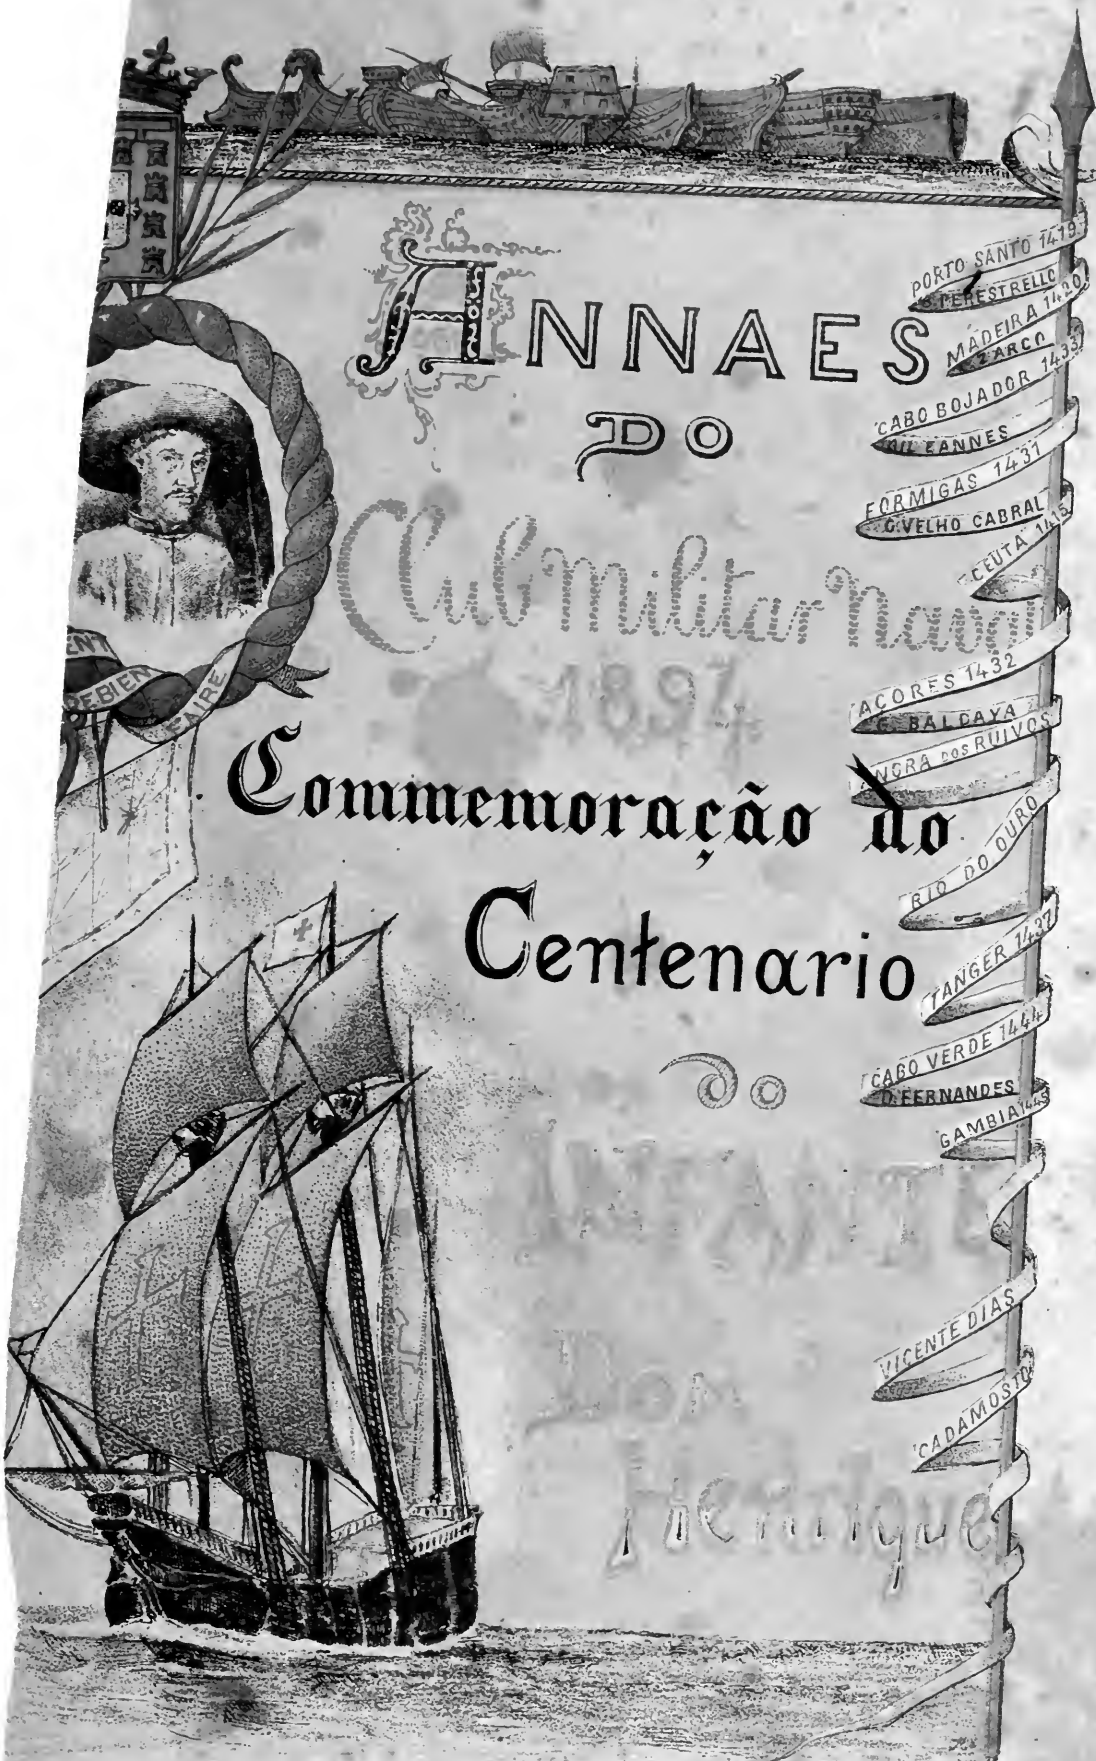 ANNAES
DO
Club Militar Naval
1894
Commemoração do
Centenario
do
INFANTE
Dom
Henrique
PORTO SANTO 1419
B. PERESTRELLO
MADEIRA 1420
ZARCO
CABO BOJADOR 1433
GIL EANNES
FORMIGAS 1431
G. VELHO CABRAL
CEUTA 1415
AÇORES 1432
G. BALDAYA
ANGRA DOS RUIVOS
RIO DO OURO
TANGER 1437
CABO VERDE 1444
D. FERNANDES
GAMBIA 1445
VICENTE DIAS
CADAMOSTO
ENT
DE BIEN
FAIRE